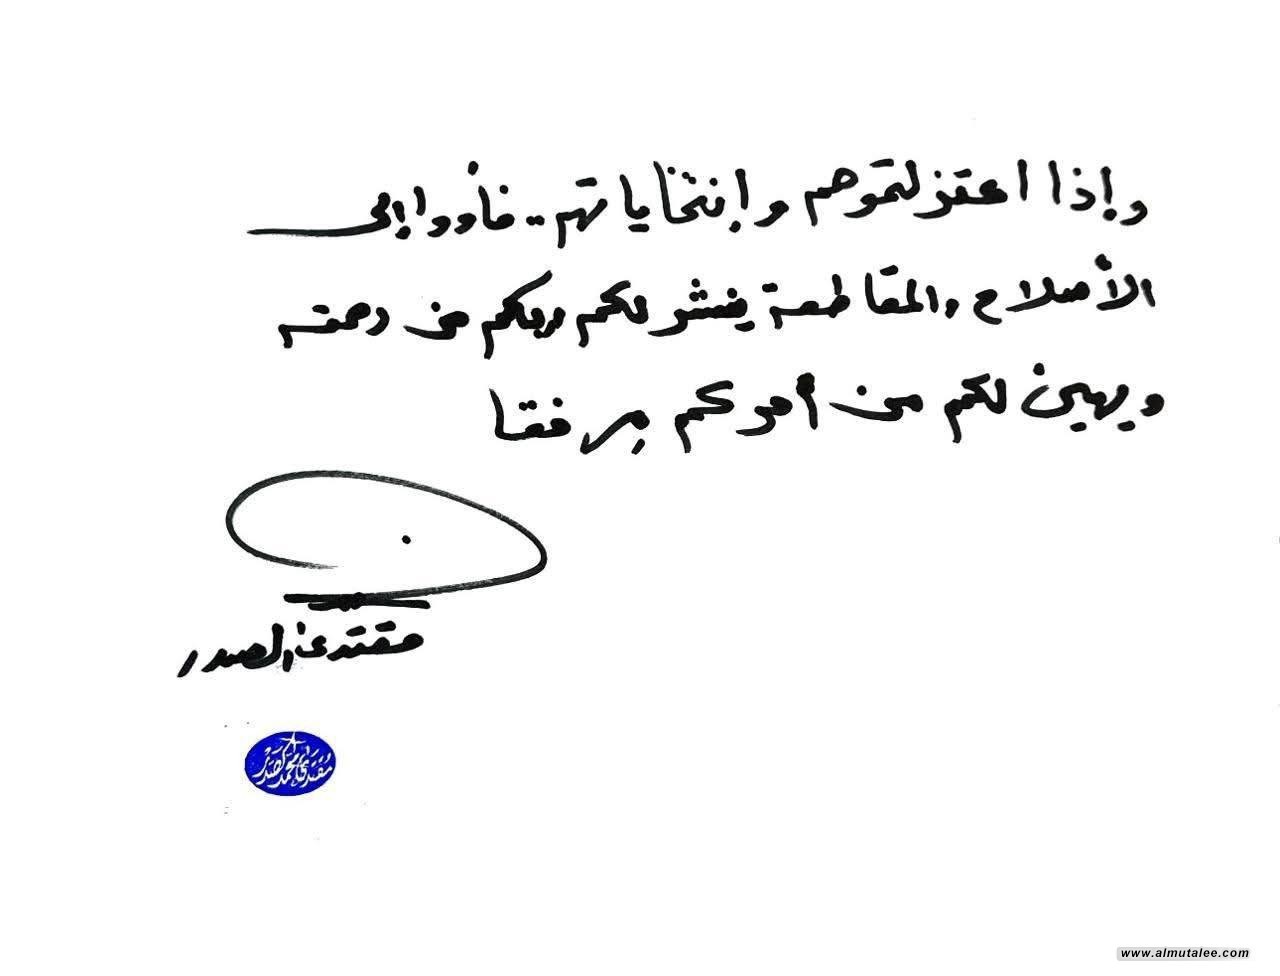 وإذا اعتزلتموهم وإنتخاباتهم.. فأووا إلى
الأصلاح والمقاطعة ينشر لكم ربكم من رحمته
ويهيئ لكم من أمركم مرفقا
مقتدى الصدر
مقتدى محمد الصدر
www.almutalee.com